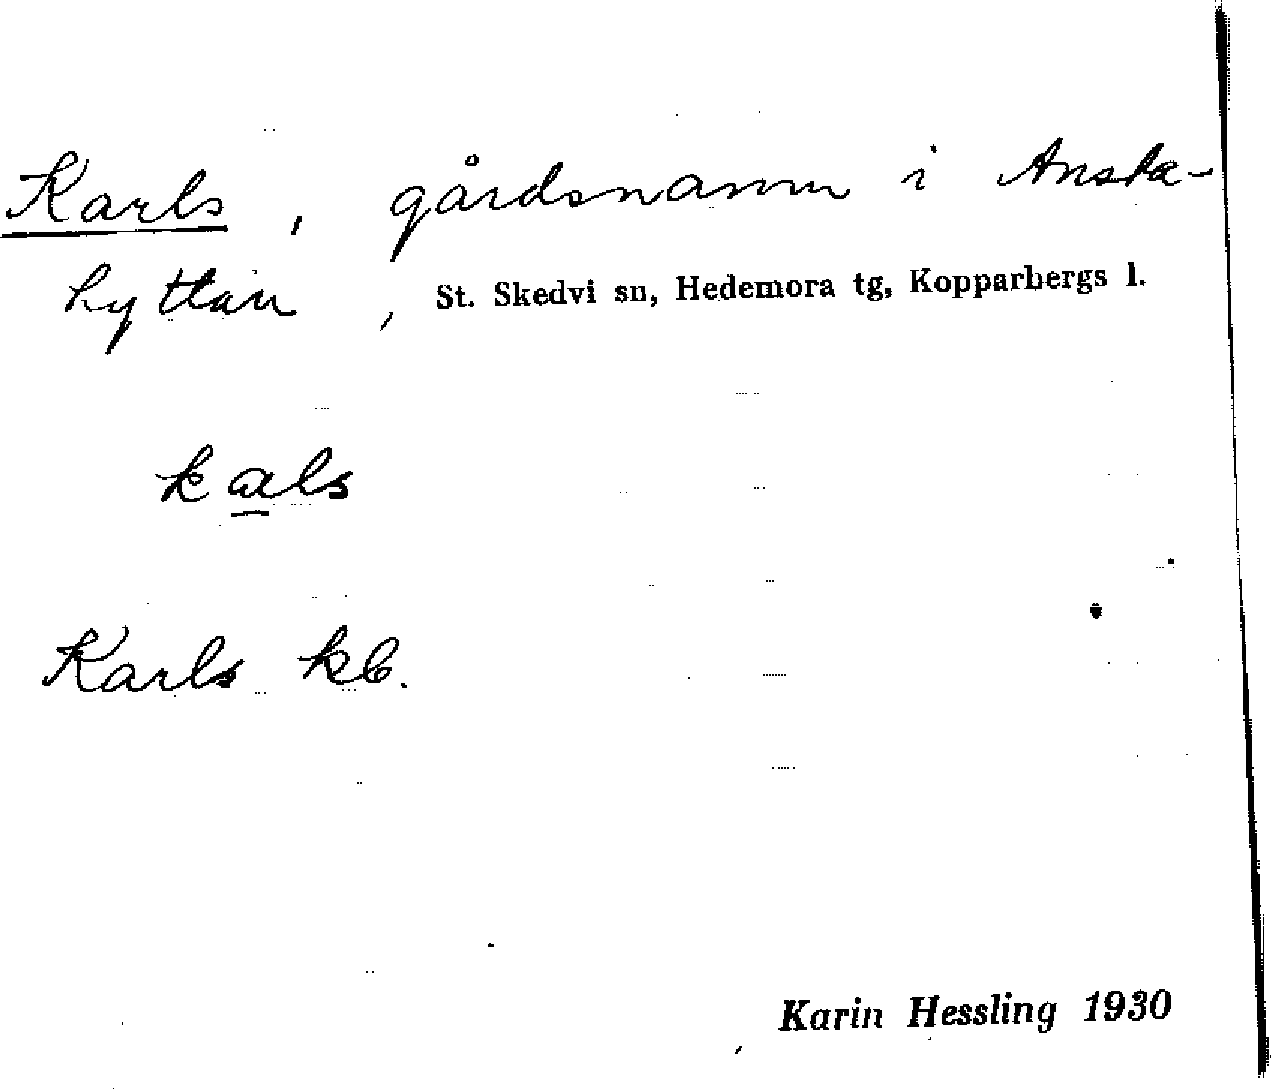 Karls, gårdsnamn i Ansta-
hyttan, St. Skedvi sn, Hedemora tg, Kopparbergs l.
kals
Karls kb.
Karin Hessling 1930